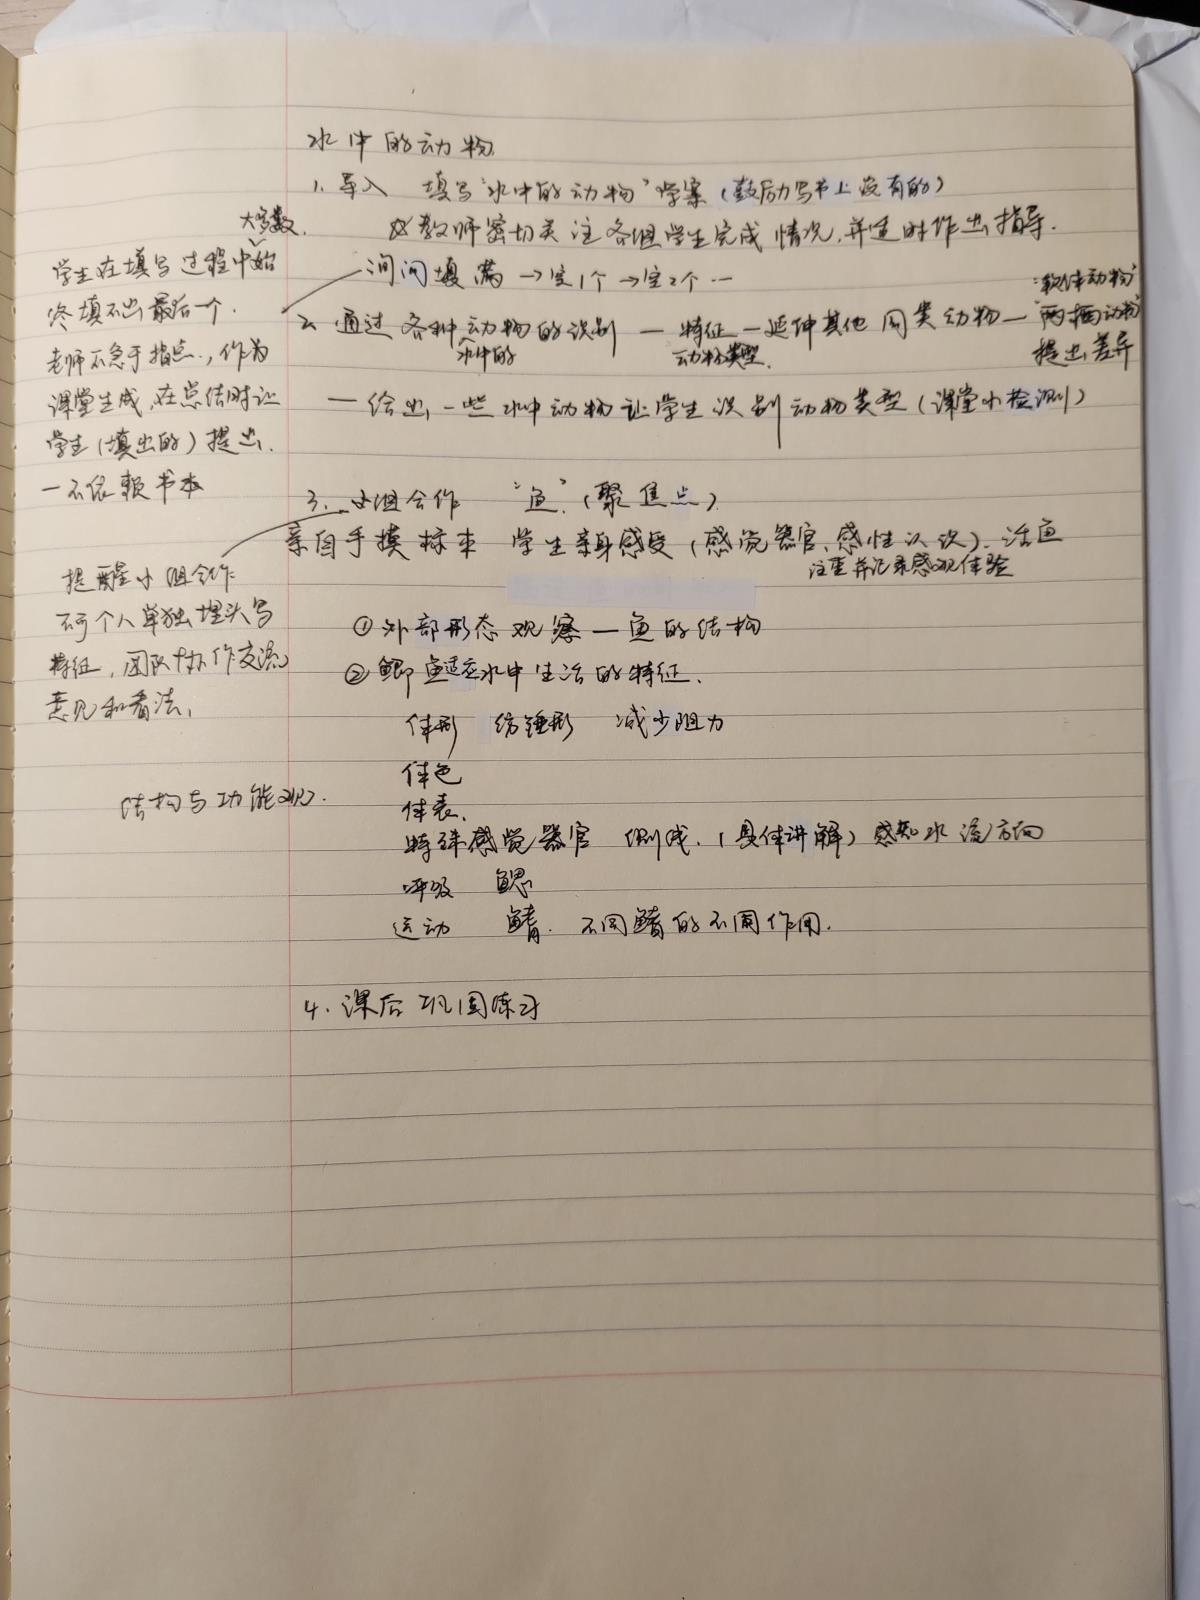 水中的动物
1. 导入 填写"水中的动物"学案(鼓励写书上没有的)
教师密切关注各组学生完成情况,并适时作出指导.
大多数
学生在填写过程中始
终填不出最后一个.
老师不急于指点,作为
课堂生成,在总结时让
学生(填出的)提出.
—不依赖书本
询问填满→空1个→空2个…
2. 通过各种动物的识别—特征—延伸其他同类动物—
水中的
动物类型.
"软体动物"
"两栖动物"
提出差异
—给出一些水中动物让学生识别动物类型(课堂小检测)
3. 小组合作 "鱼".(聚焦点)
亲自手摸标本 学生亲身感受(感觉器官、感性认识).活鱼
注重并记录感观体验
提醒小组合作
不可个人单独埋头写
特征,团队协作交流
意见和看法,
①外部形态观察—鱼的结构
②鲫鱼适应水中生活的特征.
体形 纺锤形 减少阻力
体色
结构与功能观.
体表.
特殊感觉器官 侧线.(具体讲解)感知水流方向
呼吸 鳃
运动 鳍. 不同鳍的不同作用.
4. 课后巩固练习